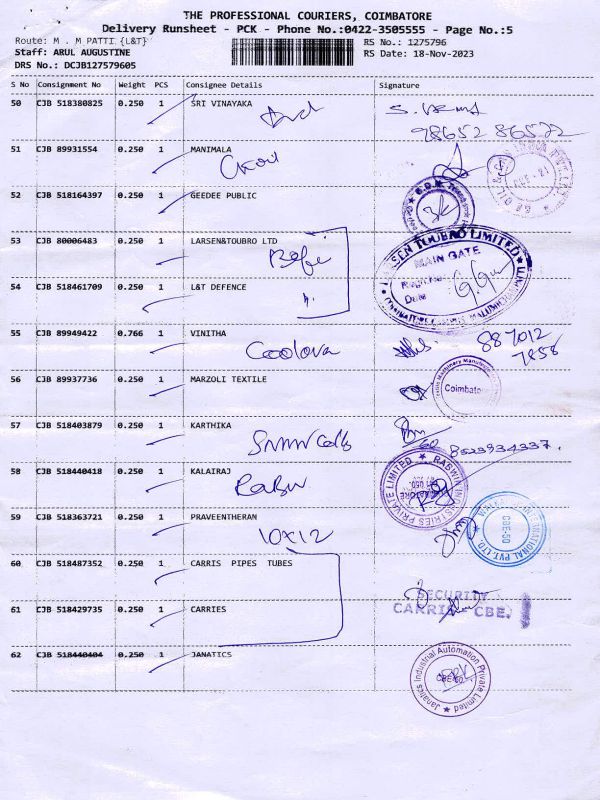 THE PROFESSIONAL COURIERS, COIMBATORE
Delivery Runsheet - PCK - Phone No.:0422-3505555 - Page No.:5
Route: M . M PATTI {L&T} RS No.: 1275796
Staff: ARUL AUGUSTINE RS Date: 18-Nov-2023
DRS No.: DCJB127579605
S No Consignment No Weight PCS Consignee Details Signature
50 CJB 518380825 0.250 1 SRI VINAYAKA
98652 86572
51 CJB 89931554 0.250 1 MANIMALA
52 CJB 518164397 0.250 1 GEEDEE PUBLIC
53 CJB 80006483 0.250 1 LARSEN&TOUBRO LTD
LARSEN TOUBRO LIMITED
MAIN GATE
54 CJB 518461709 0.250 1 L&T DEFENCE
Date
55 CJB 89949422 0.766 1 VINITHA
887012
7858
56 CJB 89937736 0.250 1 MARZOLI TEXTILE
57 CJB 518403879 0.250 1 KARTHIKA
8523934337.
58 CJB 518440418 0.250 1 KALAIRAJ
RABWIN INDUSTRIES PRIVATE LIMITED
59 CJB 518363721 0.250 1 PRAVEENTHERAN
10x12
60 CJB 518487352 0.250 1 CARRIS PIPES TUBES
SECURITY
61 CJB 518429735 0.250 1 CARRIES
CBE.
62 CJB 518440404 0.250 1 JANATICS
Janatics Industrial Automation Private Limited
CBE-